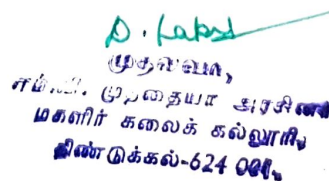 D. Laksh
முதல்வர்,
எம்.வி. முத்தையா அரசினர்
மகளிர் கலைக் கல்லூரி,
திண்டுக்கல்-624 001.